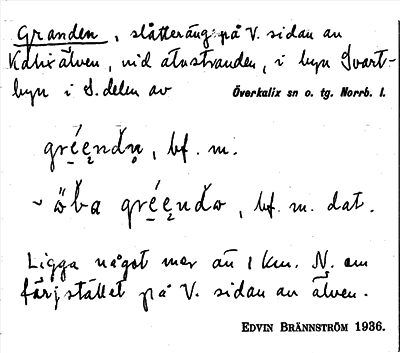 Granden, slåtteräng på V. sidan av
Kalixälven, vid älvstranden, i byn Svart-
byn i S. delen av Överkalix sn o. tg. Norrb. l.
gréendn, bf. m.
~ öba gréendo, bf. m. dat.
Ligga något mer än 1 km. N. om
färjstället på V. sidan av älven.
EDVIN BRÄNNSTRÖM 1936.